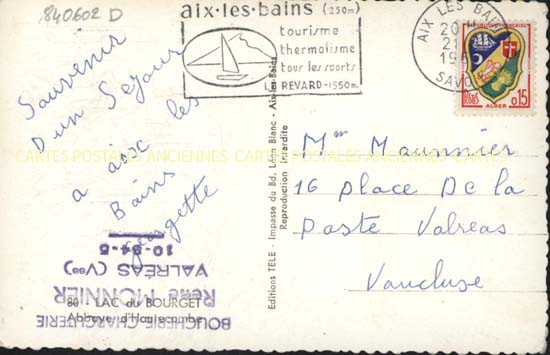 840602 D
aix-les-bains (250m)
tourisme
thermalisme
tous les sports
LE REVARD-1550m.
AIX LES BAINS
SAVOIE
ALGER
0,15
Souvenir
D'un Sejour
a aix les
Bains
Georgette
CARTES POSTALES ANCIENNES CARTES POSTALES ANCIENNES CARTES POSTALES ANCIENNES
Editions TELE - Impasse du Bd. Léon Blanc - Aix-les-Bains
Reproduction Interdite
Mr Maunnier
16 place De la
Poste Valreas
Vaucluse
BOUCHERIE-CHARCUTERIE
René MONNIER
VALRÉAS (Vse)
10-84-5
80 - LAC du BOURGET
Abbaye d'Hautecombe